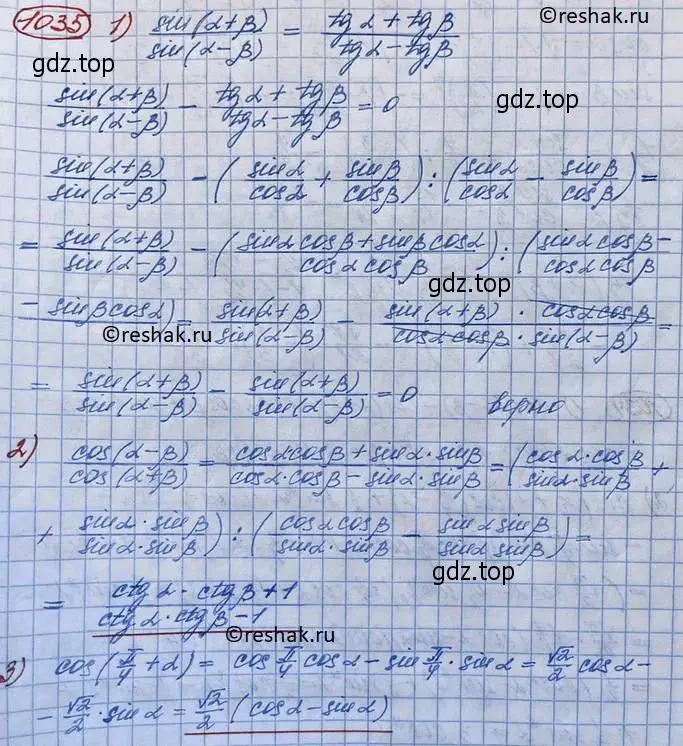 1035 1) sin(α+β)/sin(α−β) = (tgα + tgβ)/(tgα − tgβ)
gdz.top
sin(α+β)/sin(α−β) − (tgα + tgβ)/(tgα − tgβ) = 0
gdz.top
sin(α+β)/sin(α−β) − (sinα/cosα + sinβ/cosβ) : (sinα/cosα − sinβ/cosβ) =
= sin(α+β)/sin(α−β) − ((sinα cosβ + sinβ cosα)/(cosα cosβ)) : (sinα cosβ −/cosα cosβ
gdz.top
− sinβ cosα) = sin(α+β)/sin(α−β) − (sin(α+β) · cosα cosβ)/(cosα cosβ · sin(α−β)) =
©reshak.ru
©reshak.ru
= sin(α+β)/sin(α−β) − sin(α+β)/sin(α−β) = 0 верно
2) cos(α−β)/cos(α+β) = (cosα cosβ + sinα · sinβ)/(cosα · cosβ − sinα · sinβ) = (cosα · cosβ/sinα · sinβ +
+ sinα · sinβ/sinα · sinβ) : (cosα cosβ/sinα · sinβ − sinα sinβ/sinα sinβ) =
gdz.top
= (ctgα · ctgβ + 1)/(ctgα · ctgβ − 1)
©reshak.ru
3) cos(π/4 + α) = cos π/4 cosα − sin π/4 · sinα = √2/2 cosα −
− √2/2 · sinα = √2/2 (cosα − sinα)
gdz.top
©reshak.ru